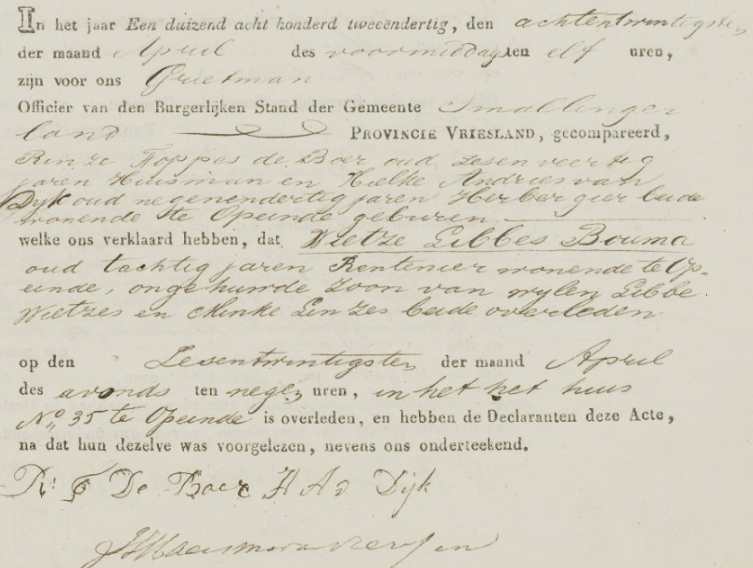 In het jaar Een duizend acht honderd tweeëndertig, den achtentwintigsten
der maand April des voormiddags ten elf uren,
zijn voor ons Grietman
Officier van den Burgerlijken Stand der Gemeente Smallinger
land PROVINCIE VRIESLAND, gecompareerd,
Rinze Foppes de Boer oud zesenveertig
jaren Huisman en Hielke Andries van
Dijk oud negenendertig jaren Herbergier beide
wonende te Opeinde geburen
welke ons verklaard hebben, dat Wietze Libbes Bouma
oud tachtig jaren Rentenier wonende te Op-
einde, ongehuwde Zoon van wylen Libbe
Wietzes en Minke Linzes beide overleden
op den Zesentwintigsten der maand April
des avonds ten negen uren, in het het huis
No 35 te Opeinde is overleden, en hebben de Declaranten deze Acte,
na dat hun dezelve was voorgelezen, nevens ons onderteekend.
R F De Boer H A v Dijk